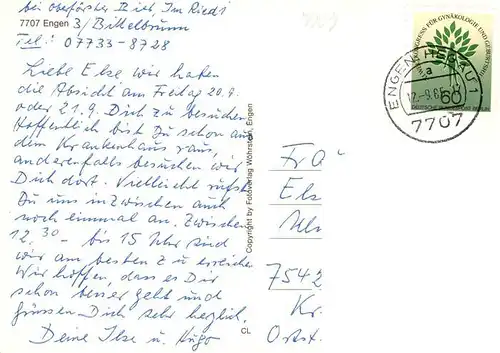 bei oberförster Biet Im Riedt
7707 Engen 3/Bittelbrunn
Tel: 07733-8728
Liebe Else, wir haben
die Absicht am Freitag 20.9.
oder 21.9. Dich zu besuchen
Hoffentlich bist Du schon aus
dem Krankenhaus raus,
anderenfalls besuchen wir
Dich dort. Vielleicht rufst
Du uns inzwischen auch
noch einmal an. Zwischen
12.30 - bis 15 Uhr sind
wir am besten zu erreichen
Wir hoffen, dass es Dir
schon besser geht und
grüssen Dich sehr herzlich.
Deine Ilse u. Hugo
Copyright by Fotoverlag Wöhrstein, Engen
CL
KONGRESS FÜR GYNÄKOLOGIE UND GEBURTSHILFE
60
ENGEN, HEGAU 1
a
7707
Fra
Els
7542
Kr.
Ortst.